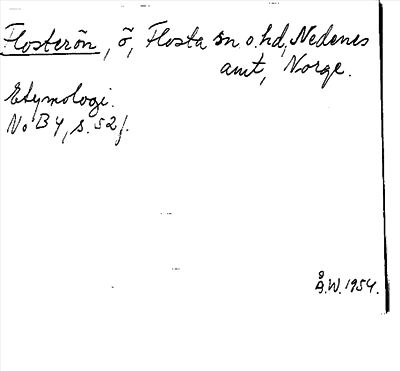 Flosterön, ö, Flosta sn o. hd, Nedenes
amt, Norge.
Etymologi.
NoB 4, s. 52 f.
Å.W. 1954.